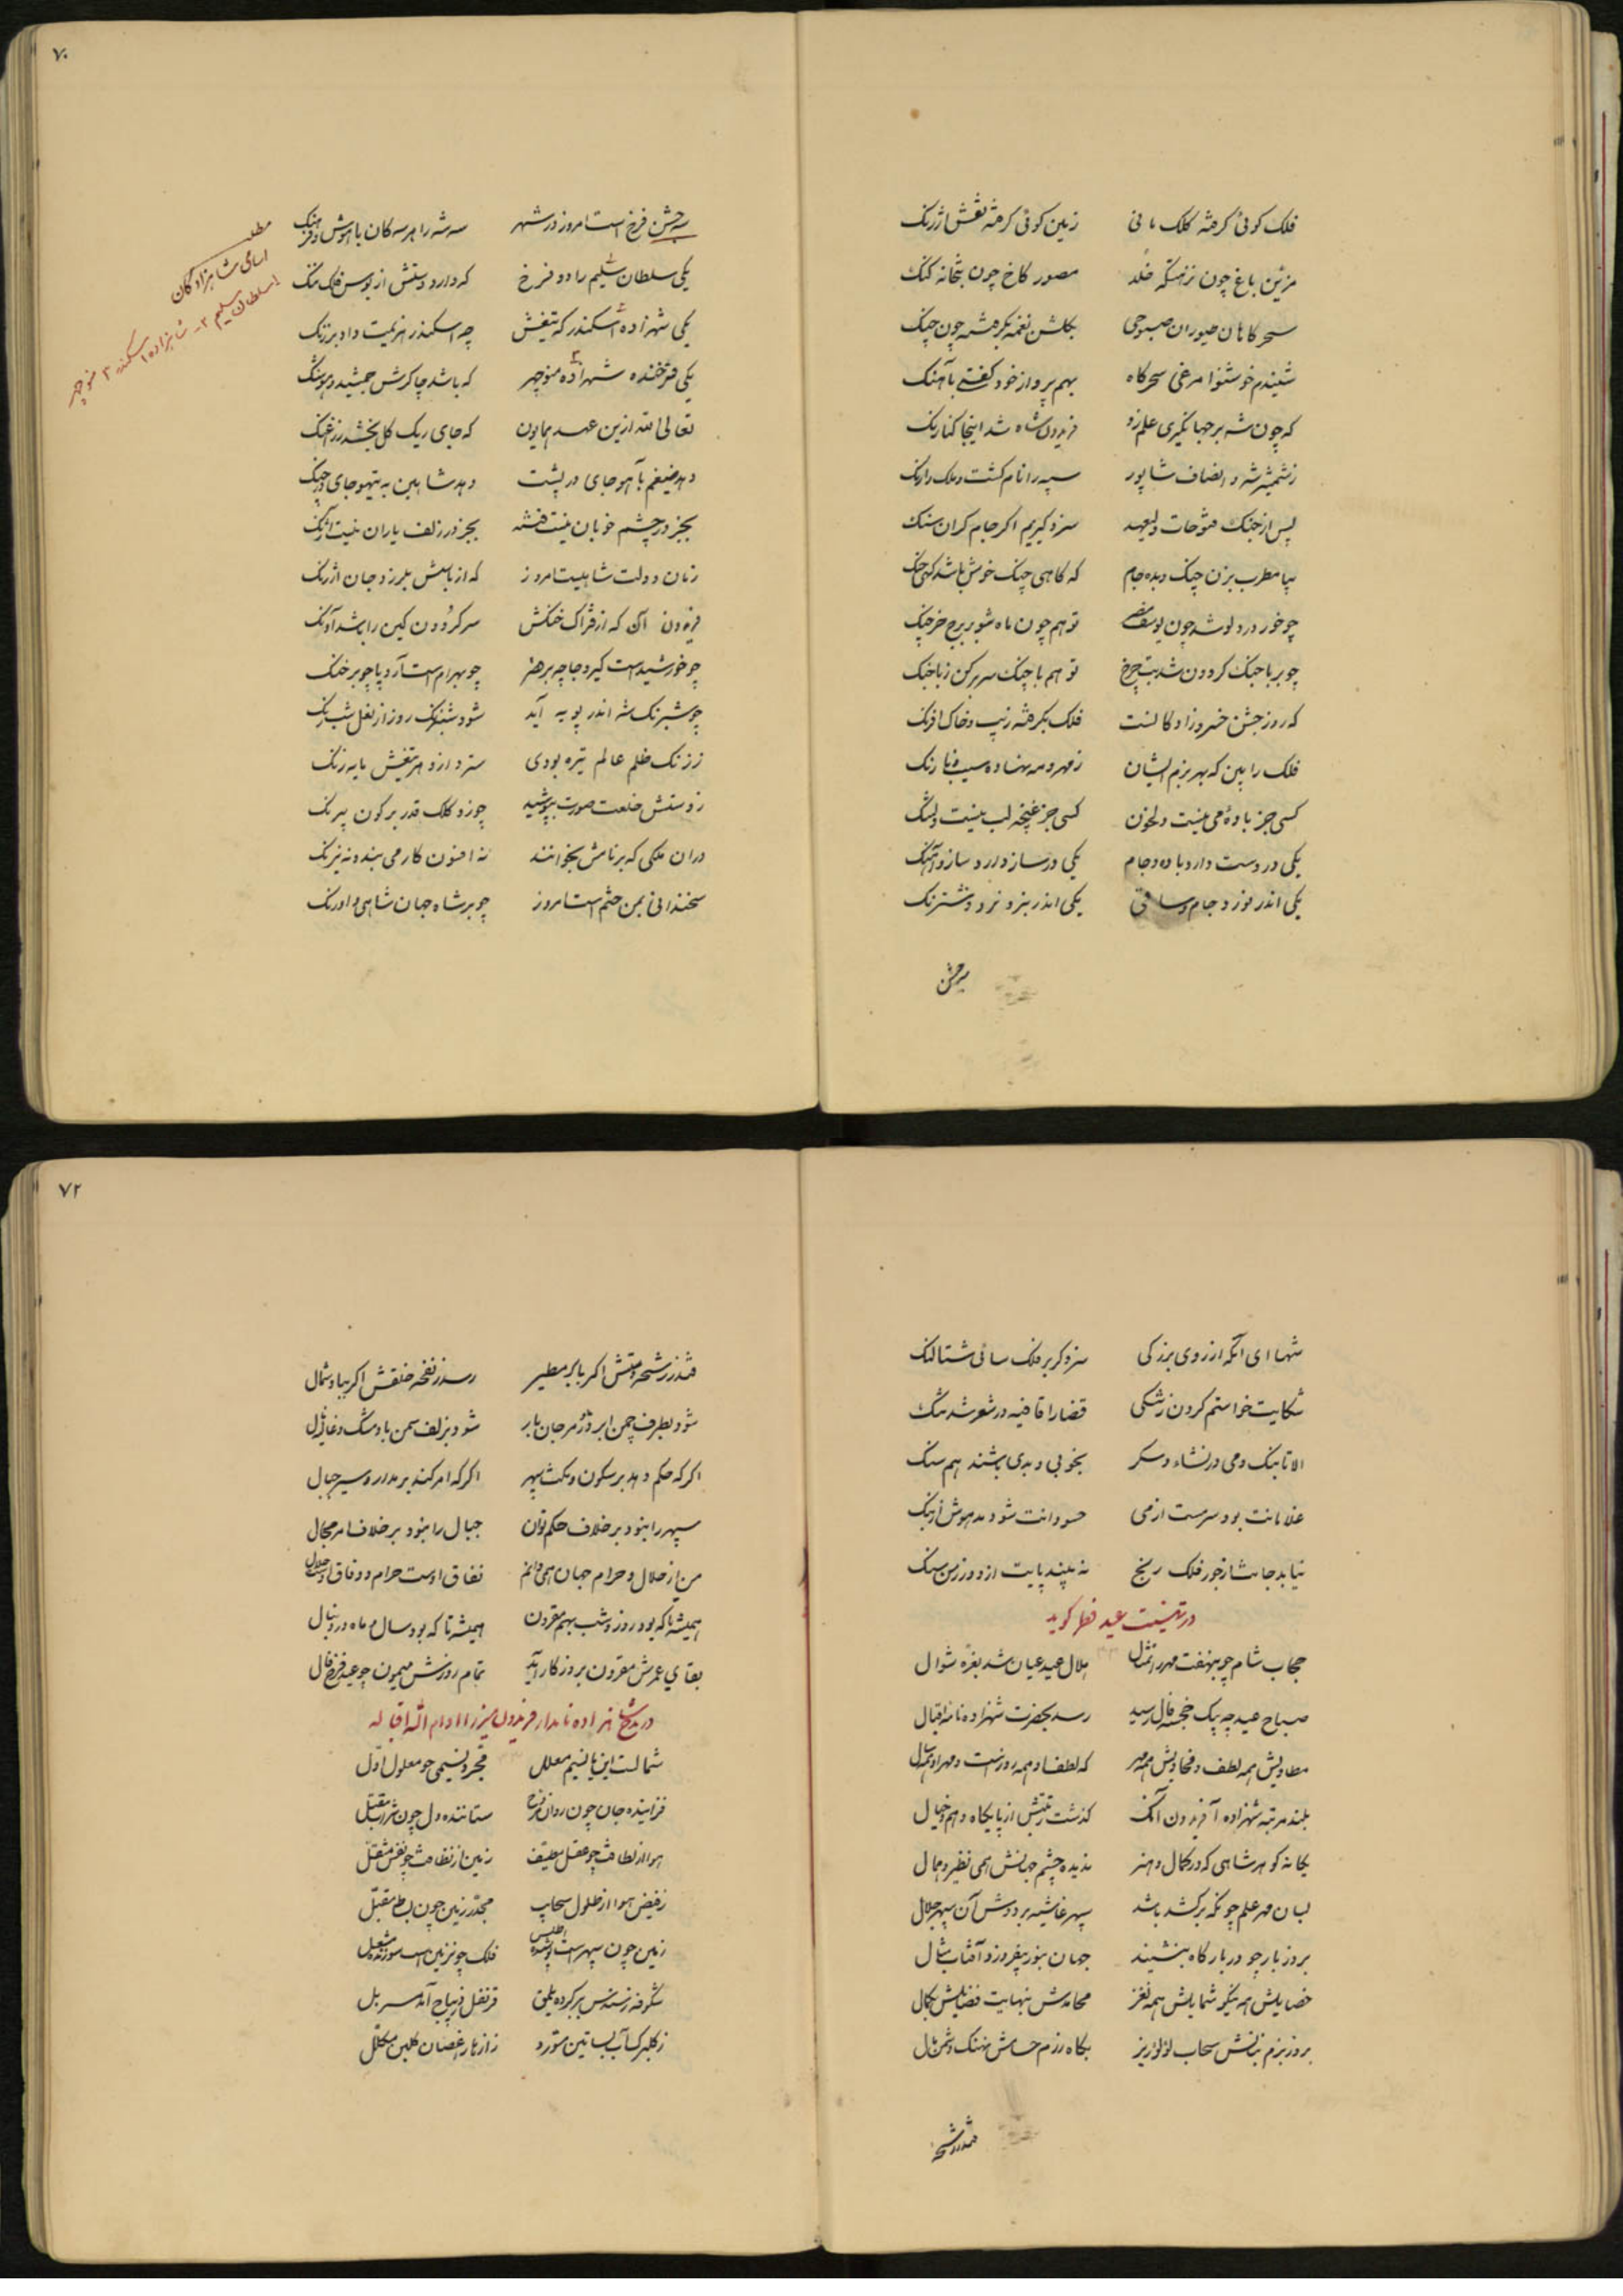 فلک کوئی کرفته کلک مانی زمین کوئی کرفته نقش ارژنک
مزین باغ چون نزهتکه خلد مصور کاخ چون بتخانه کنک
سحرکاهان طیوران صبوحی بکلشن نغمه بکرفته چون چنک
شنیدم خوشنوا مرغی سحرکاه بهم پرواز خود کفتی بآهنک
که چون شه بر جهانکیری علم زد فریدون شاه شد اینجا کنارنک
ز شمشیر شه و انصاف شاپور سپه را نام کشت و ملک را رنک
پس از جنک فتوحات ولیعهد سزد کیریم اکر جام کران سنک
بیا مطرب بزن چنک و بده جام که کاهی چنک خوش باشد کهی جنک
چو خور در دلو شد چون یوسف مصر تو هم چون ماه شو بر برج خرچنک
چو بربا چنک کردون شد بت چرخ تو هم با چنک سر برکن زبا چنک
که روز جشن خسروزادکانست فلک بکرفته زیب و خاک افرنک
فلک را بین که بهر بزم ایشان ز مهر و مه نهاده سیب و نارنک
کسی جز باده می نیست دلخون کسی جز غنچه لب نیست دلتنک
یکی در دست دارد باده و جام یکی در ساز دارد ساز و آهنک
یکی اندر نورد جام و ساقی یکی اندر نبرد نرد و شترنک
سه جشن
۷۰
سه جشن فرخ است امروز در شهر سه شه را هر سه کان با هوش و فرهنک
یکی سلطان سلیم راد و فرخ که دارد دستش از بوس فلک ننک
یکی شهزاده اسکندر که تیغش چه اسکندر هزیمت داد بر زنک
یکی فرخنده شهزاده منوچهر که باشد چاکرش جمشید و هوشنک
تعالی الله ازین عهد همایون که جای ریک کل بخشد ز زرغنک
دهد ضیغم بآهو جای در پشت دهد شاهین به تیهو جای در چنک
بجز در چشم خوبان نیست فتنه بجز در زلف یاران نیست آونک
زمان دولت شاهیست امروز که از باسش بلرزد جان ارژنک
فریدون آن که از فتراک خنکش سر کردون کین را باشد آونک
چو خورشید است کیرد جا چه بر هنز چو بهرام است آرد پا چو بر خنک
چو شبرنک شه اندر پویه آید شود شبرنک روز از نعل شبرنک
ز زنک ظلم عالم تیره بودی سترد از وی تیغش مایه زنک
ز دستش خلعت صورت بپوشید چو زد کلک قدر بر کون بیرنک
در آن ملکی که بر نامش بخوانند نه افسون کار می بندد نه نیرنک
سخندانی بمن ختم است امروز چو بر شاه جهان شاهی و اورنک
مطلب
اسامی شاهزادگان
۱ سلطان سلیم ۲ـ شاهزاده اسکندر ۳ منوچهر
شها ای آنکه از روی بزرکی سزد کر بر فلک سائی شتالنک
شکایت خواستم کردن ز تنکی قضا را قافیه در شعر شد تنک
الا تا بنک و می در نشاء و سکر بخوبی و بدی باشند هم سنک
غلامانت بود سرمست از می حسودانت شود مدهوش از بنک
نیابد جانت از جور فلک رنج نه بیند پایت از دور زمن سنک
در تهنیت عید فطر کوید
حجاب شام چو بنهفت مهر را تمثال هلال عید عیان شد بغره شوال
صباح عید چه پیک خجسته فال رسید رسد بحضرت شهزاده نامه اقبال
مطاویش همه لطف و فحاویش همه مهر که لطف او همه روز است و مهر او همه سال
بلند مرتبه شهزاده آفریدون آنک کذشت رتبتش از پایکاه وهم و خیال
یکانه کوهر شاهی که در کمال و هنر ندیده چشم جهانش همی نظیر و همال
بسان مهر علم چونکه برکشد باشد سپهر غاشیه بر دوش آن سپهر جلال
بروز بار چو در بارکاه بنشیند جهان بنور بیفروزد آفتاب مثال
خصایلش همه نیکو شمایلش همه نغز محامدش بنهایت فضایلش بکمال
بروز بزم بنانش سحاب لولو ریز بکاه رزم حسامش نهنک دشمن مال
فتد ز رشحه
۷۲
فتد ز رشحه دستش اکر بابر مطیر رسد ز نفحه خلقش اکر بباد شمال
شود بطرف چمن ابر در و مرجان بار شود بزلف سمن باد مشک و غالیه مال
اکر که حکم دهد بر سکون و مکث سپهر اکر که امر کند بر مدار و سیر جبال
سپهر را نبود بر خلاف حکم توان جبال را نبود بر خلاف امر مجال
من از حلال و حرام جهان همی دانم نفاق اوست حرام و وفاق اوست حلال
همیشه تا که بود روز و شب بهم مقرون همیشه تا که بود سال و ماه در دنبال
بقای عمرش مقرون بروزکار ابد تمام روزش میمون چو عید فرخ فال
در مدح شاهزاده نامدار فریدون میرزا ادام الله اقباله
شمالست این یا نسیم معلل مجرد نسیمی چو معلول اول
فزاینده جان چون روان مفرح ستاننده دل چون شراب مقبل
هوا از لطافت چو عقل مطیف زمین از نظافت چو نفس مثقل
ز فیض هوا از طلول سحاب مجدر زمین چون بط مقبل
زمین چون سپهر است پوشیده اطلس فلک چو نزمین است سوزنده مشعل
شکوفه ز سندس ببر کرده یلمق قرنفل ز دیباج آمد مسربل
ز کلبرک سآب بساتین مورد ز ازهار اغصان کلبن مکلل